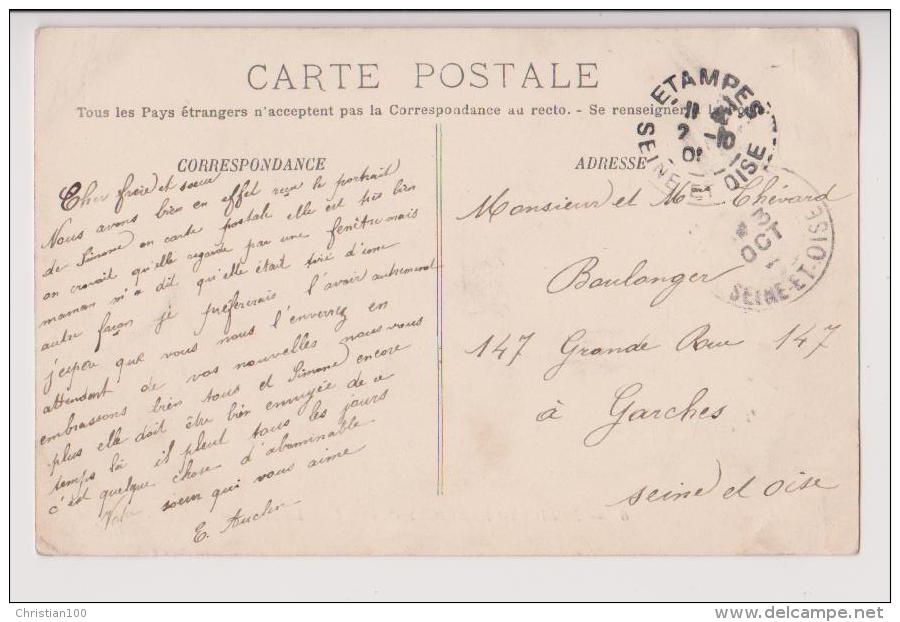 CARTE POSTALE
Tous les Pays étrangers n'acceptent pas la Correspondance au recto. - Se renseigner à la Poste.
CORRESPONDANCE
Cher frère et sœur
Nous avons bien en effet reçu le portrait
de Simone en carte postale elle est très bien
on croirait qu'elle regarde par une fenêtre mais
maman m'a dit qu'elle était tiré d'une
autre façon je préfèrerais l'avoir autrement
j'espère que vous nous l'enverrez en
attendant de vos nouvelles nous vous
embrassons bien tous et Simone encore
plus elle doit être bien ennuyée de ce
temps là il pleut tous les jours
c'est quelque chose d'abominable
Votre soeur qui vous aime
E.
ADRESSE
Monsieur et Mme Chévard
Boulanger
147 Grande Rue 147
à Garches
Seine et Oise
ETAMPES
SEINE ET OISE
OCT
SEINE-ET-OISE
Christian100